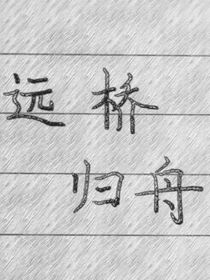 远桥
归舟